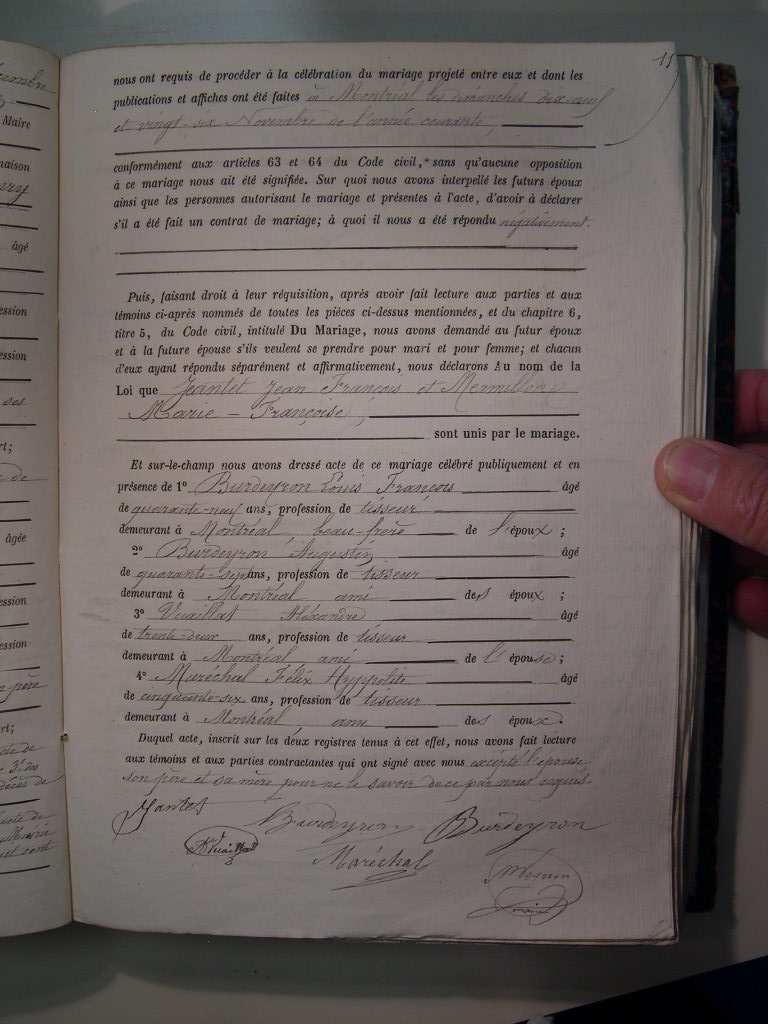 11
nous ont requis de procéder à la célébration du mariage projeté entre eux et dont les
publications et affiches ont été faites à Montréal les dimanches dix-neuf
et vingt-six Novembre de l'année courante,
conformément aux articles 63 et 64 du Code civil, sans qu'aucune opposition
à ce mariage nous ait été signifiée. Sur quoi nous avons interpellé les futurs époux
ainsi que les personnes autorisant le mariage et présentes à l'acte, d'avoir à déclarer
s'il a été fait un contrat de mariage; à quoi il nous a été répondu négativement.
Puis, faisant droit à leur réquisition, après avoir fait lecture aux parties et aux
témoins ci-après nommés de toutes les pièces ci-dessus mentionnées, et du chapitre 6,
titre 5, du Code civil, intitulé Du Mariage, nous avons demandé au futur époux
et à la future épouse s'ils veulent se prendre pour mari et pour femme; et chacun
d'eux ayant répondu séparément et affirmativement, nous déclarons Au nom de la
Loi que Jeantet Jean François et Mermillon
Marie-Françoise,
sont unis par le mariage.
Et sur-le-champ nous avons dressé acte de ce mariage célébré publiquement et en
présence de 1° Burdeyron Louis François âgé
de quarante-neuf ans, profession de tisseur
demeurant à Montréal beau-frère de l'époux;
2° Burdeyron Augustin âgé
de quarante-sept ans, profession de tisseur
demeurant à Montréal ami des époux;
3° Vuaillat Alexandre âgé
de trente-deux ans, profession de tisseur
demeurant à Montréal ami de l'épouse;
4° Maréchal Félix Hyppolite âgé
de cinquante-six ans, profession de tisseur
demeurant à Montréal ami des époux.
Duquel acte, inscrit sur les deux registres tenus à cet effet, nous avons fait lecture
aux témoins et aux parties contractantes qui ont signé avec nous excepté l'épouse,
son père et sa mère pour ne le savoir de ce par nous requis.
Jantet Burdeyron Burdeyron
Maréchal
Maire
maison
âgé
ession
ession
ses
rt;
de
âgée
ession
ession
père
rt;